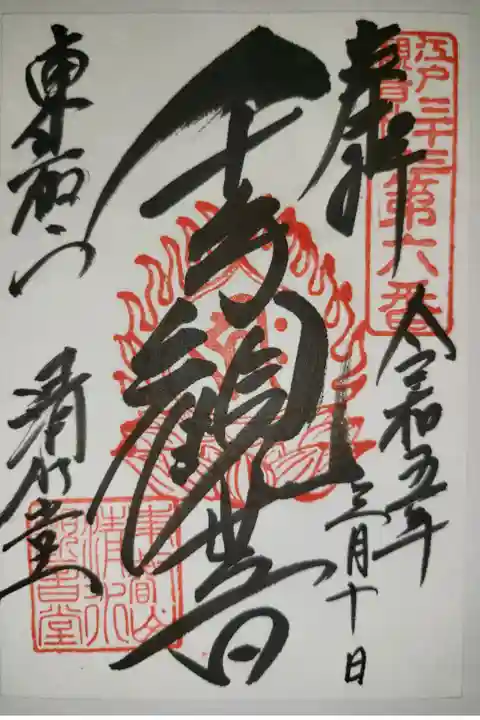 江戸三十三
観音
第六番
奉拝
令和五年
三月十日
千手觀世音
東叡山
清水堂
東叡山
清水
観音堂